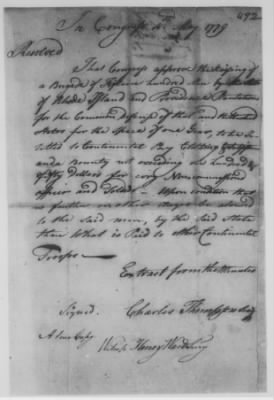 492
In Congress May 1779
Resolved
That Congress approve the raising of
a Brigade of fifteen hundred Men by
of Rhode Island and Providence Plantations
for the Common defence of that and
States for the Space of one Year, to be
to Continental Pay
and a Bounty not exceeding one hundred &
fifty Dollars for every Noncommissioned
officer and Soldier - Upon condition that
no further or other wages be allowed
to the said men, by the said State
than What is Paid to other Continental
Troops
Extract from the Minutes
Signed. Charles Thompson
A true Copy
Witness Henry Ward Secry